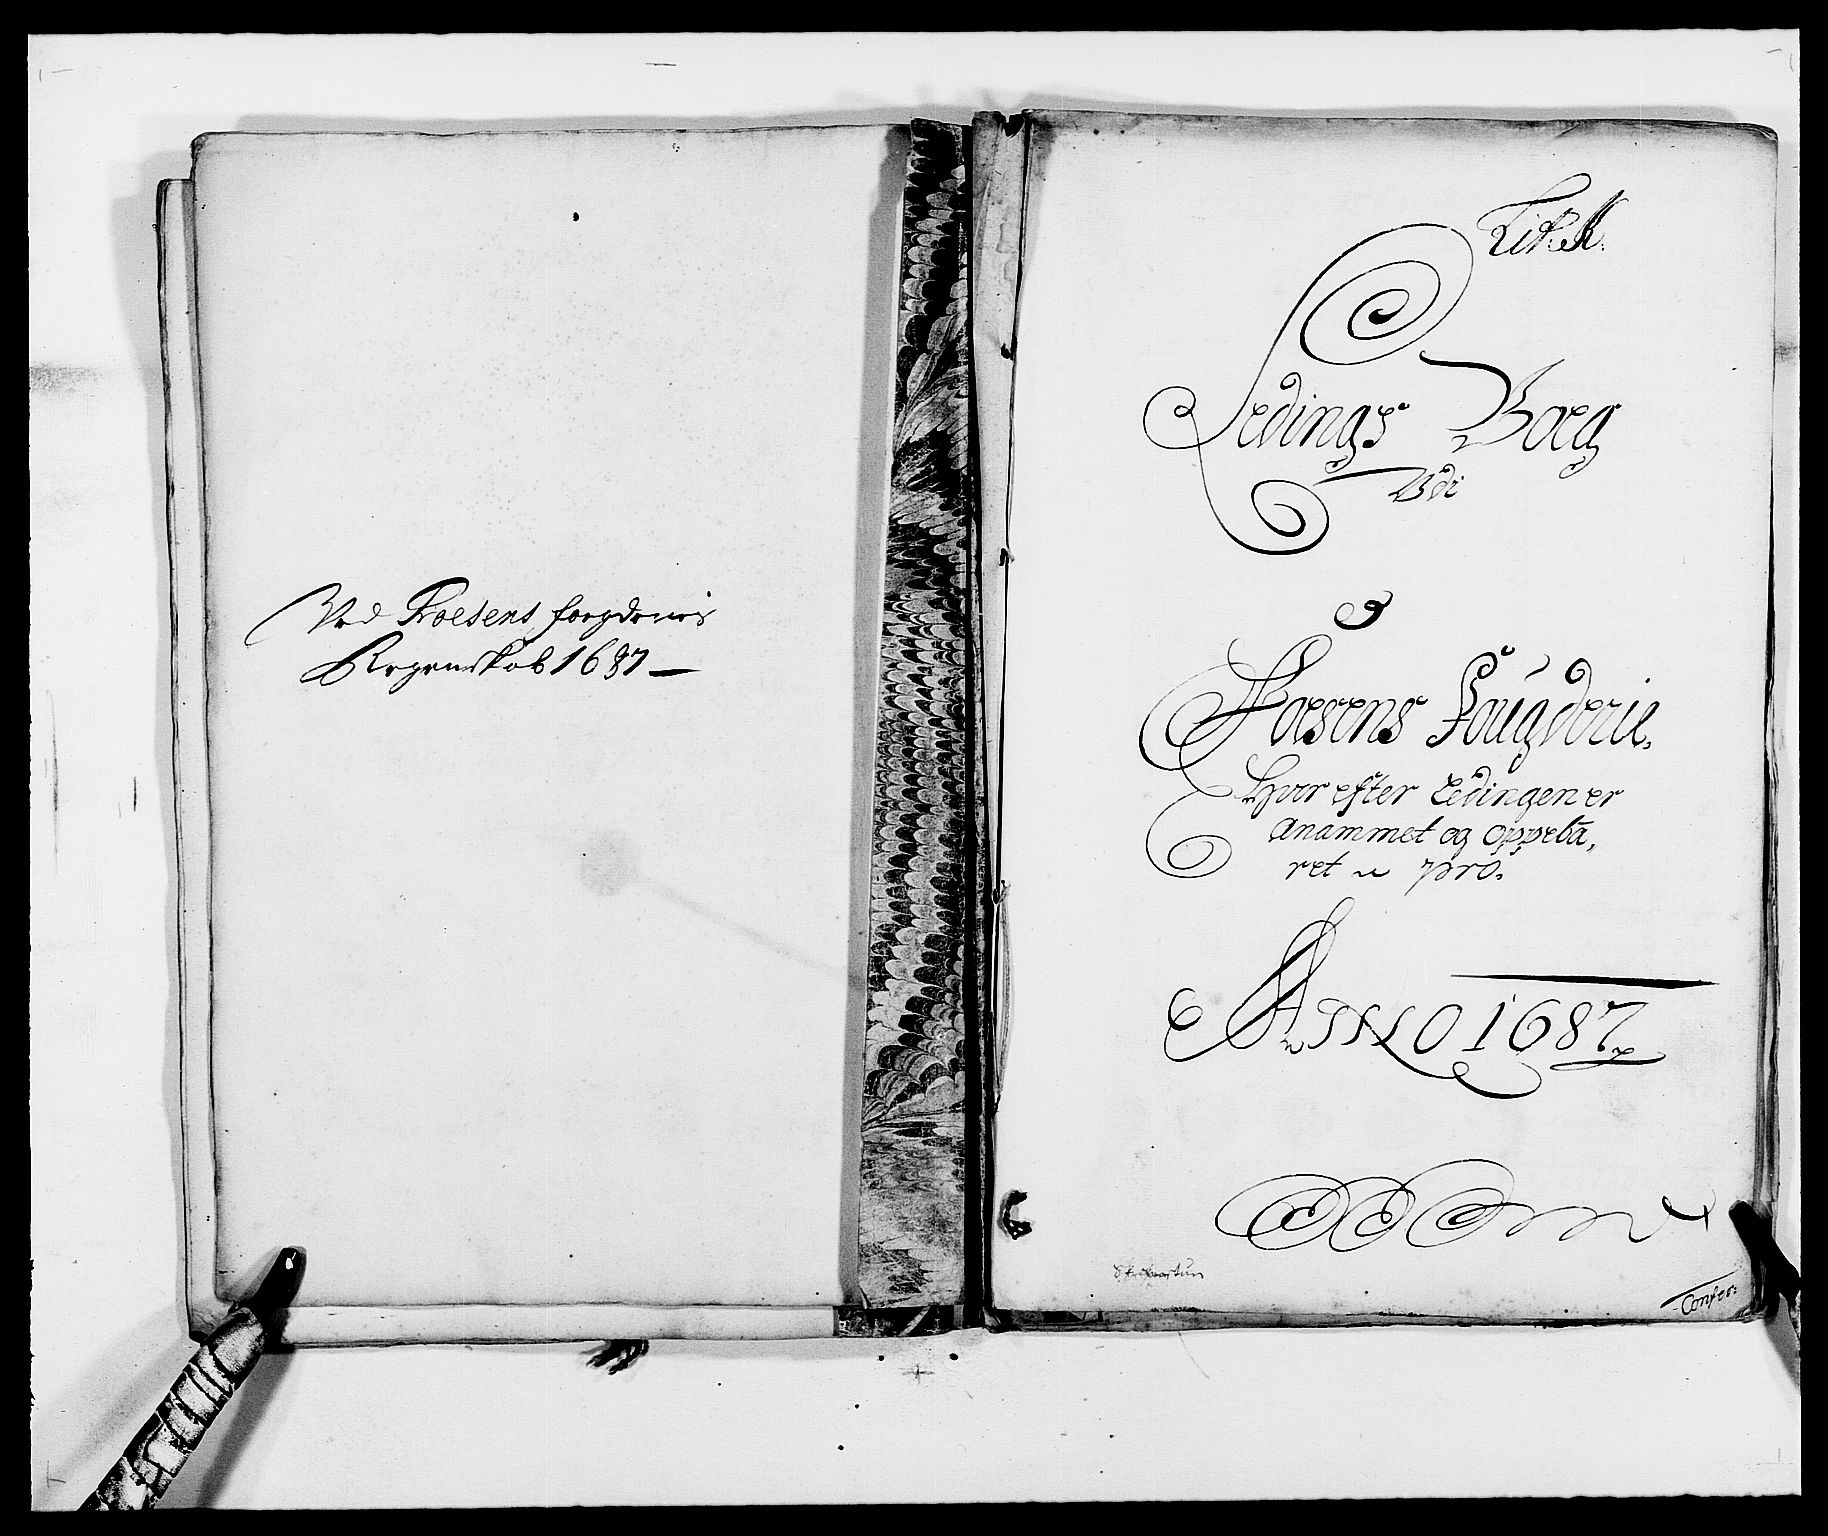 Ved Fosens fougderies
Regenskab 1687
Lit: K.
Ledings Bog
Udi
Fosens Fougderie,
Hvor efter Ledingen er
Anammet og oppebaa,
ret pro.
ANNO 1687
Confer: